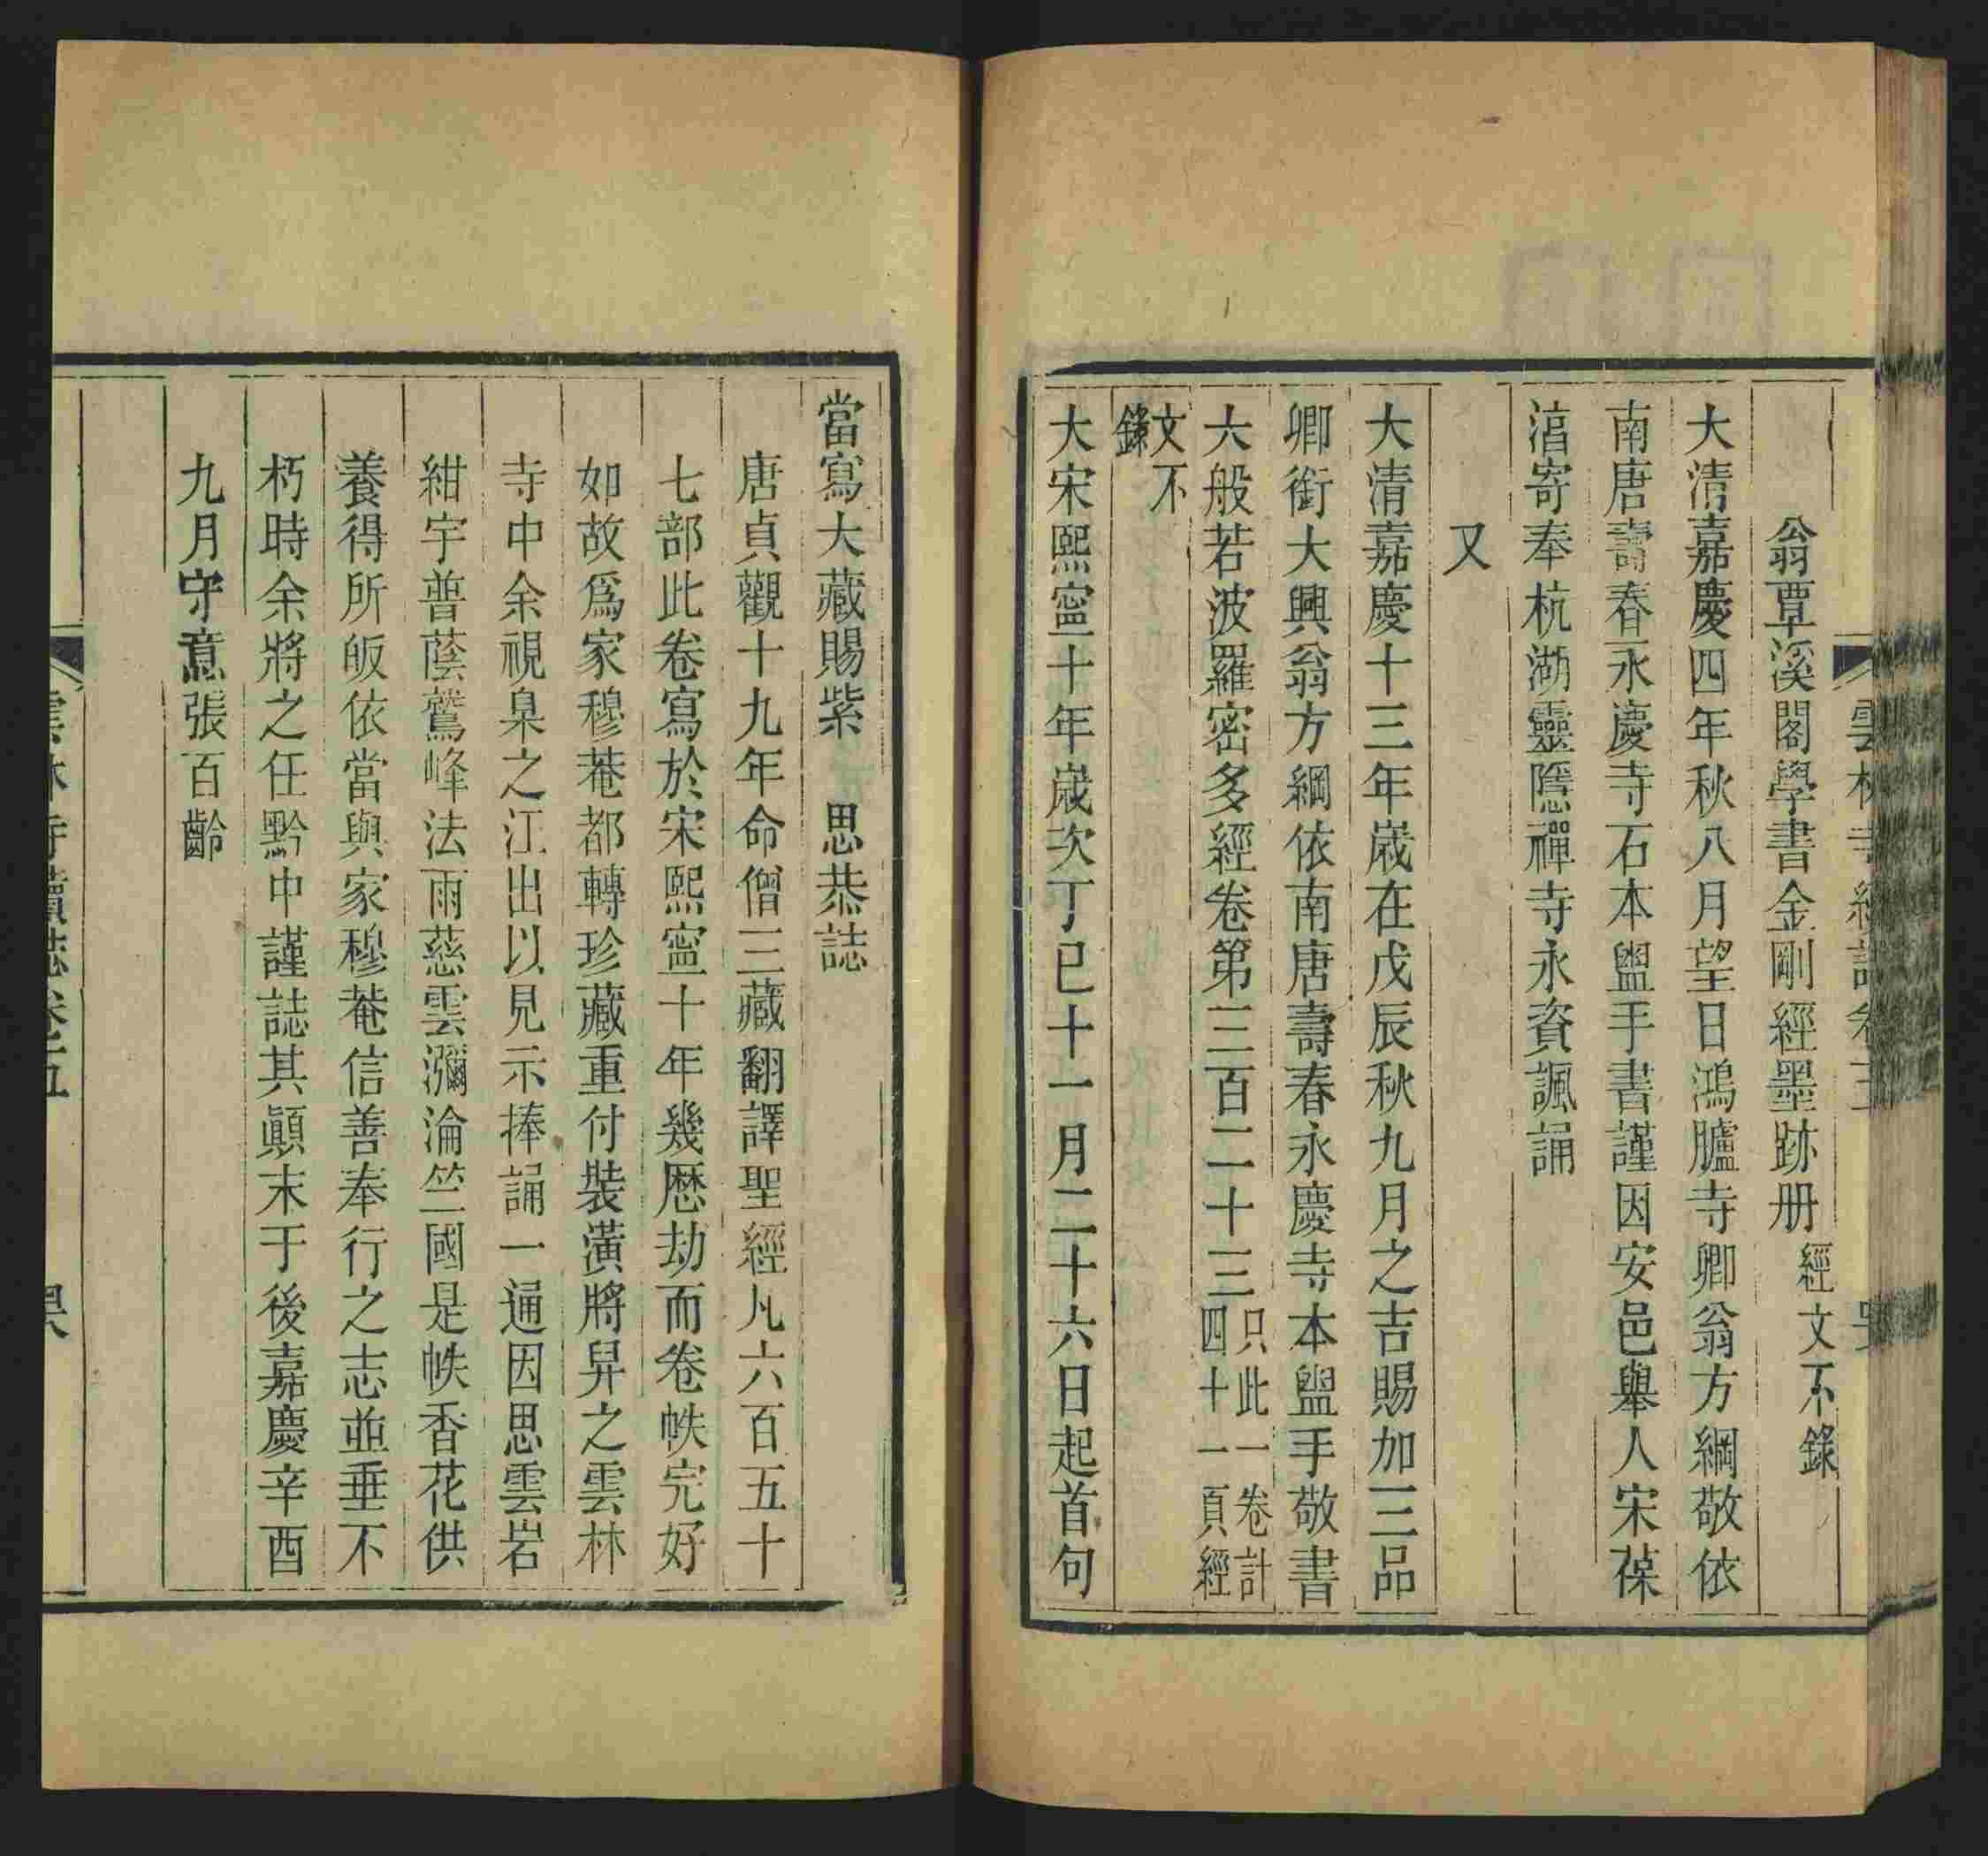 翁覃溪閣學書金剛經墨跡册經文不錄
大清嘉慶四年秋八月望日鴻臚寺卿翁方綱敬依
南唐壽春永慶寺石本盥手書謹因安邑舉人宋葆
湻寄奉杭湖靈隱禪寺永資諷誦
又
大清嘉慶十三年歲在戊辰秋九月之吉賜加三品
卿銜大興翁方綱依南唐壽春永慶寺本盥手敬書
大般若波羅密多經卷第三百二十三只此一卷計四十一頁經
文不錄
大宋熙寧十年歲次丁巳十一月二十六日起首句
當寫大藏賜紫 思恭誌
唐貞觀十九年命僧三藏翻譯聖經凡六百五十
七部此卷寫於宋熙寧十年幾歷劫而卷帙完好
如故爲家穆菴都轉珍藏重付裝潢將舁之雲林
寺中余視臬之江出以見示捧誦一通因思雲岩
紺宇普蔭鷲峰法雨慈雲瀰淪竺國是帙香花供
養得所皈依當與家穆菴信善奉行之志並垂不
朽時余將之任黔中謹誌其顚末于後嘉慶辛酉
九月守意張百齡
雲林寺續誌卷五